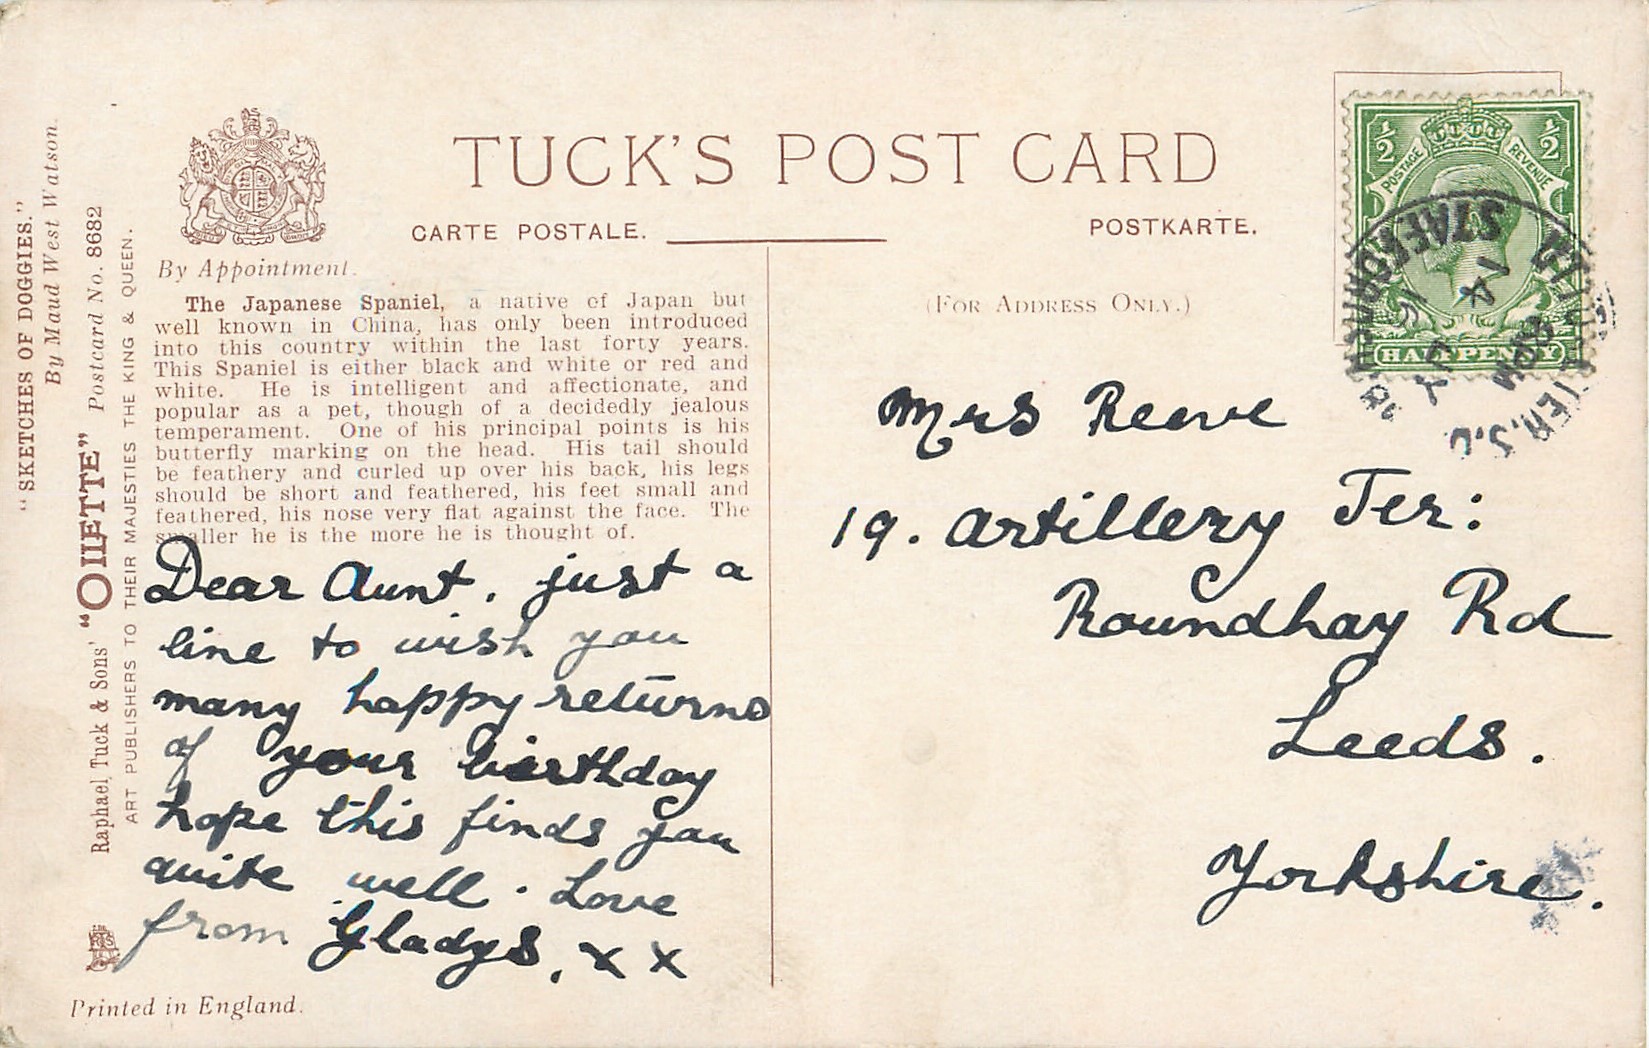 TUCK'S POST CARD
CARTE POSTALE.
POSTKARTE.
(FOR ADDRESS ONLY.)
By Appointment.
"SKETCHES OF DOGGIES."
By Maud West Watson.
Raphael Tuck & Sons' "OILETTE" Postcard No. 8682
ART PUBLISHERS TO THEIR MAJESTIES THE KING & QUEEN.
The Japanese Spaniel, a native of Japan but
well known in China, has only been introduced
into this country within the last forty years.
This Spaniel is either black and white or red and
white. He is intelligent and affectionate, and
popular as a pet, though of a decidedly jealous
temperament. One of his principal points is his
butterfly marking on the head. His tail should
be feathery and curled up over his back, his legs
should be short and feathered, his feet small and
feathered, his nose very flat against the face. The
smaller he is the more he is thought of.
Dear Aunt, just a
line to wish you
many happy returns
of your birthday
hope this finds you
quite well. Love
from Gladys. x x
Printed in England.
1/2 1/2
POSTAGE REVENUE
HALFPENNY
Mrs Reeve
19. Artillery Ter:
Roundhay Rd
Leeds.
Yorkshire.